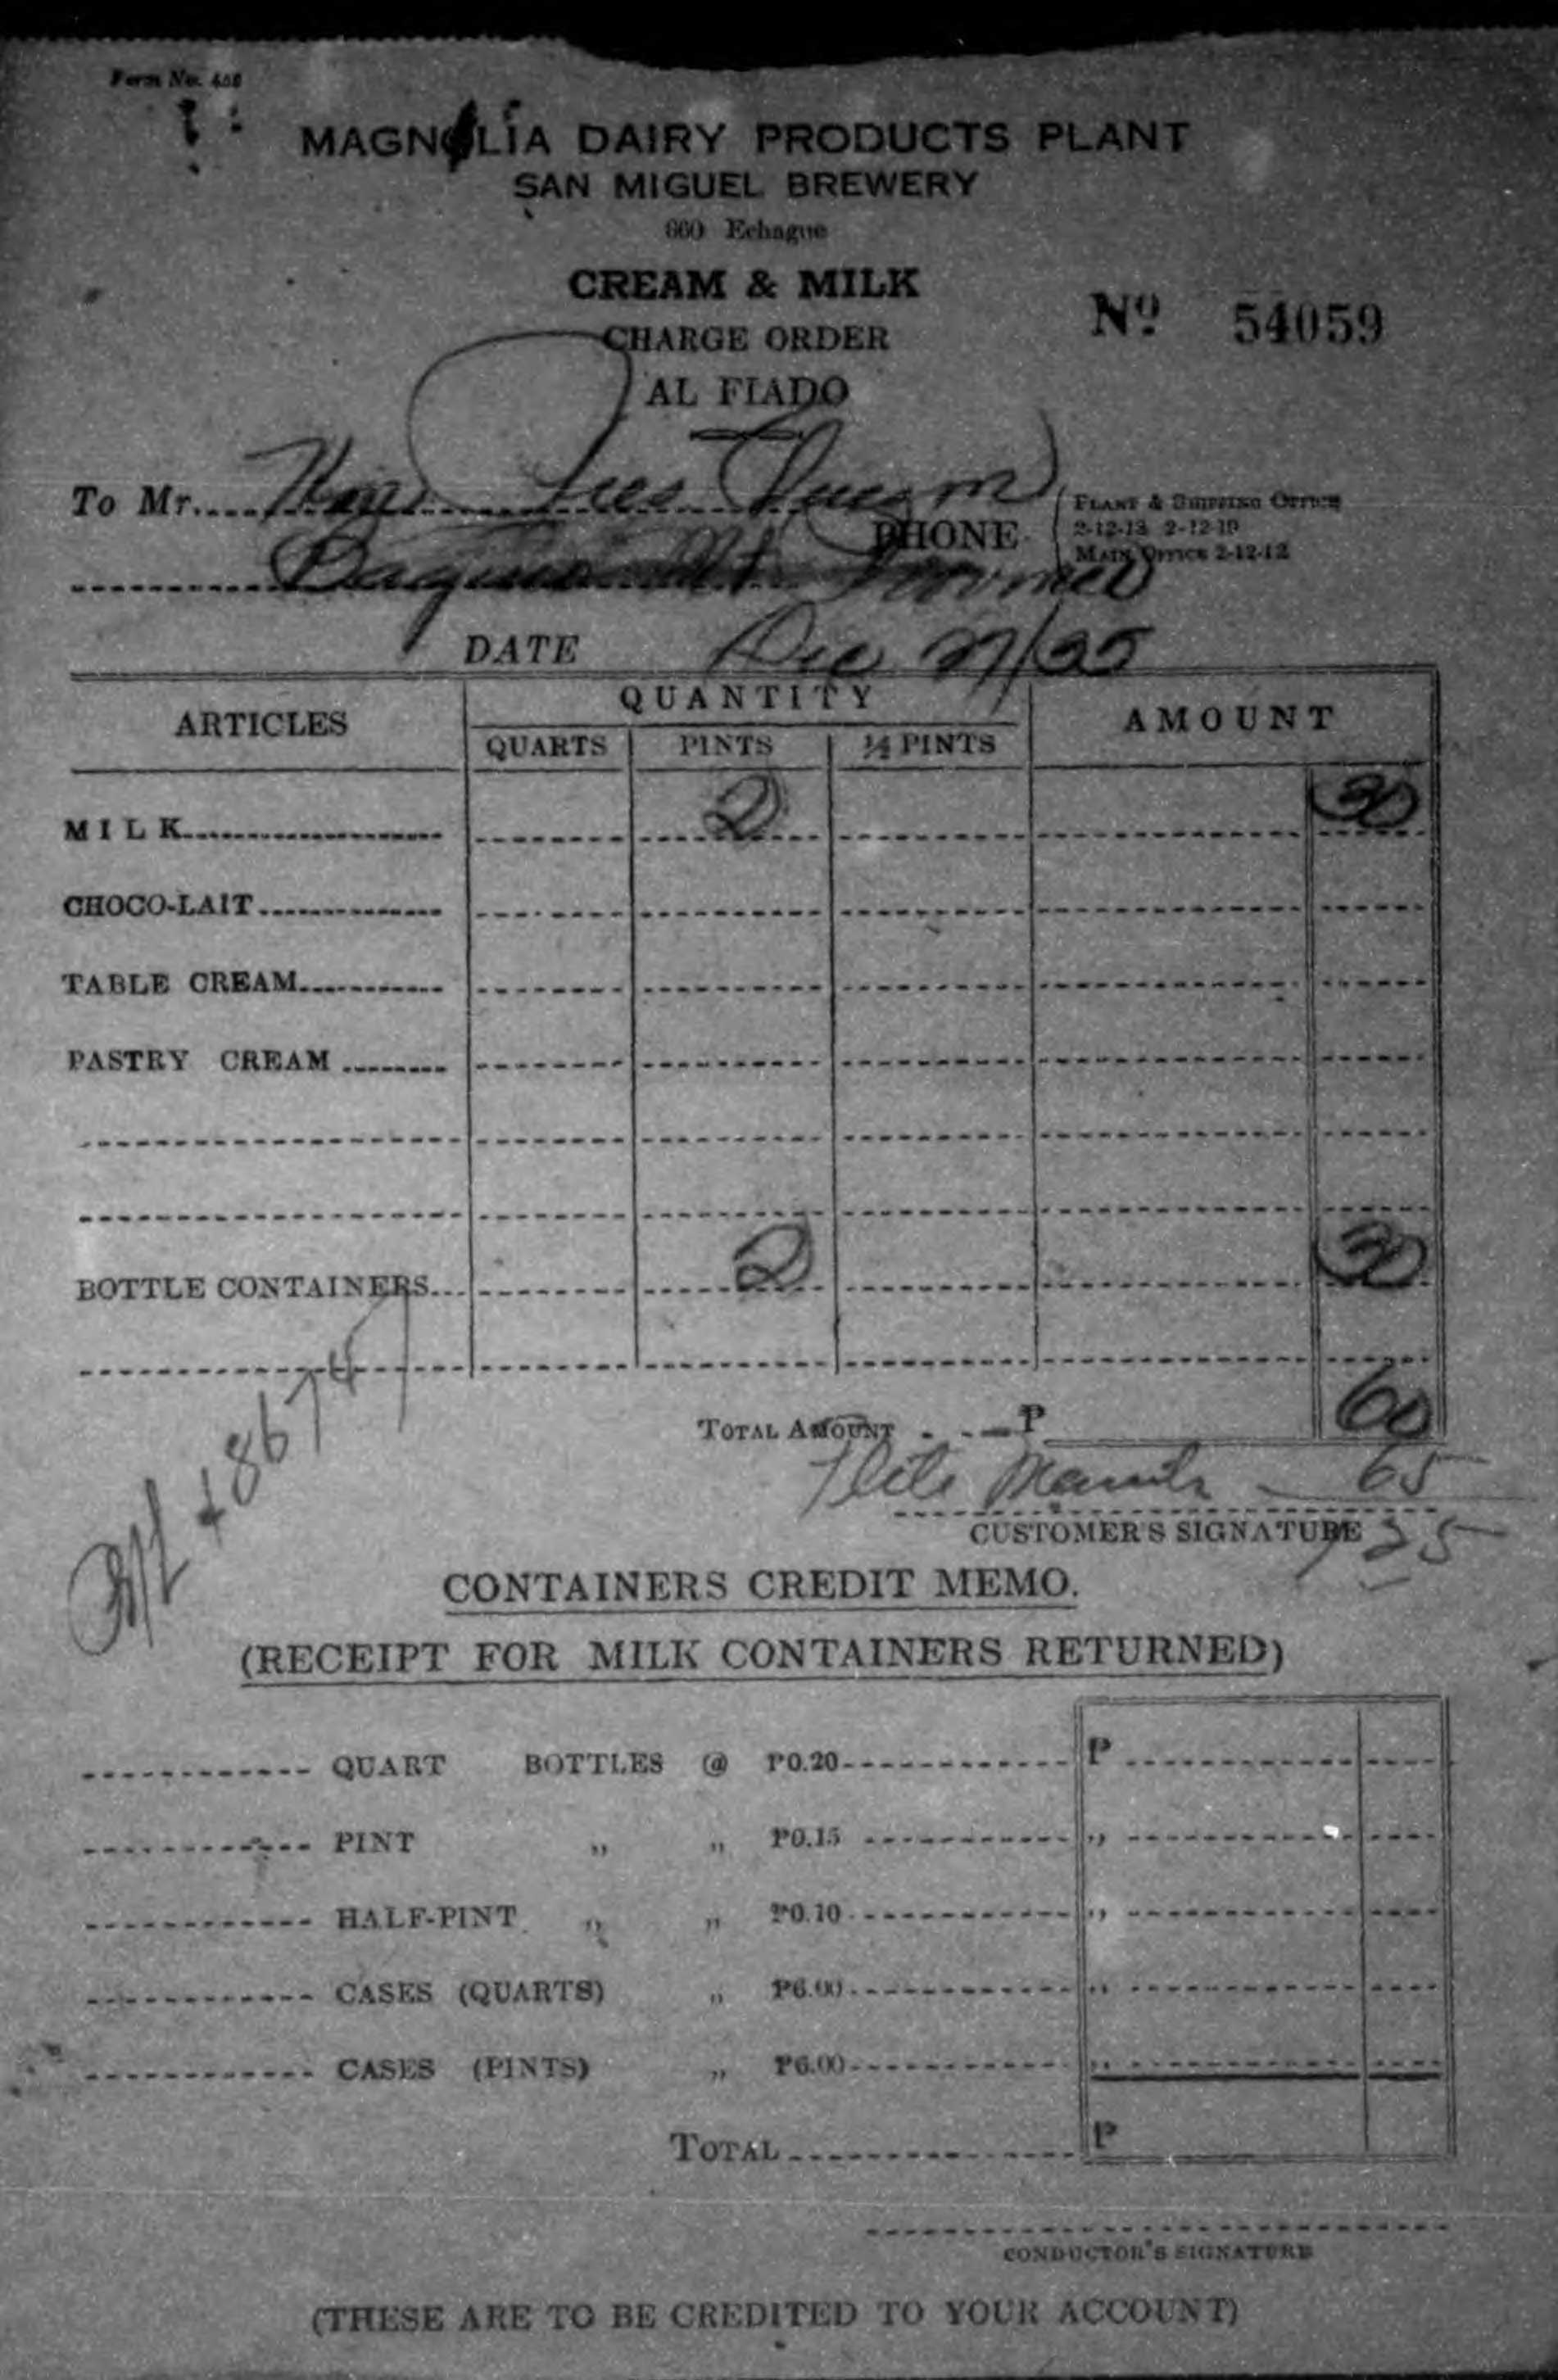 Form No.
MAGNOLIA DAIRY PRODUCTS PLANT
SAN MIGUEL BREWERY
660 Echague
CREAM & MILK
Nº 54059
CHARGE ORDER
AL FIADO
To Mr.
PLANT & SHIPPING OFFICE
PHONE 2-12-13 2-12-19
MAIN OFFICE 2-12-12
Baguio Mt. Province
DATE Dec 27/35
ARTICLES QUANTITY AMOUNT
QUARTS PINTS ½ PINTS
MILK 2 30
CHOCO-LAIT
TABLE CREAM
PASTRY CREAM
BOTTLE CONTAINERS 2 30
TOTAL AMOUNT ₱ 60
65
CUSTOMER'S SIGNATURE
CONTAINERS CREDIT MEMO.
(RECEIPT FOR MILK CONTAINERS RETURNED)
QUART BOTTLES @ ₱0.20 ₱
PINT ,, ,, ₱0.15 ,,
HALF-PINT ,, ,, ₱0.10 ,,
CASES (QUARTS) ,, ₱6.00 ,,
CASES (PINTS) ,, ₱6.00 ,,
TOTAL ₱
CONDUCTOR'S SIGNATURE
(THESE ARE TO BE CREDITED TO YOUR ACCOUNT)